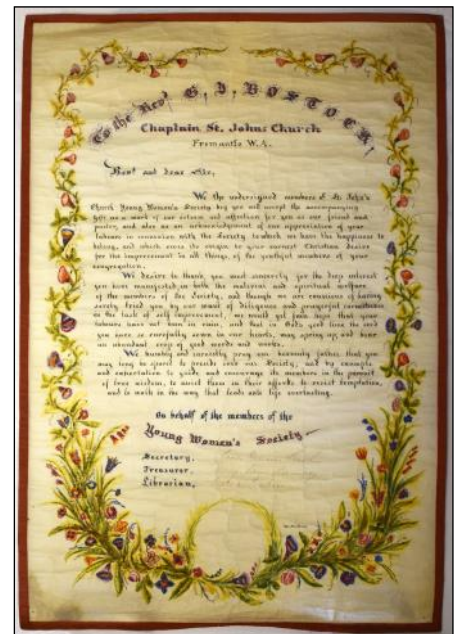 To the Revd G. J. BOSTOCK
Chaplain St. Johns Church
Fremantle W.A.
Revd and dear Sir,
We the undersigned members of St. John's
Church Young Women's Society beg you will accept the accompanying
gift as a mark of our esteem and affection for you as our friend and
pastor, and also as an acknowledgement of our appreciation of your
labours in connexion with the Society to which we have the happiness to
belong, and which owes its origin to your earnest Christian desire
for the improvement in all things, of the youthful members of your
congregation.
We desire to thank you most sincerely for the deep interest
you have manifested in both the material and spiritual welfare
of the members of the Society, and though we are conscious of having
sorely tried you by our want of diligence and prayerful earnestness
in the task of self improvement, we would yet fain hope that your
labours have not been in vain, and that in God's good time the seed
you have so carefully sown in our hearts, may spring up and bear
an abundant crop of good words and works.
We humbly and earnestly pray our heavenly father that you
may long be spared to preside over our Society, and by example
and exhortation to guide and encourage its members in the pursuit
of true wisdom, to assist them in their efforts to resist temptation,
and to walk in the way that leads unto life everlasting.
On behalf of the members of the
Young Women's Society
Secretary,
Treasurer,
Librarian,